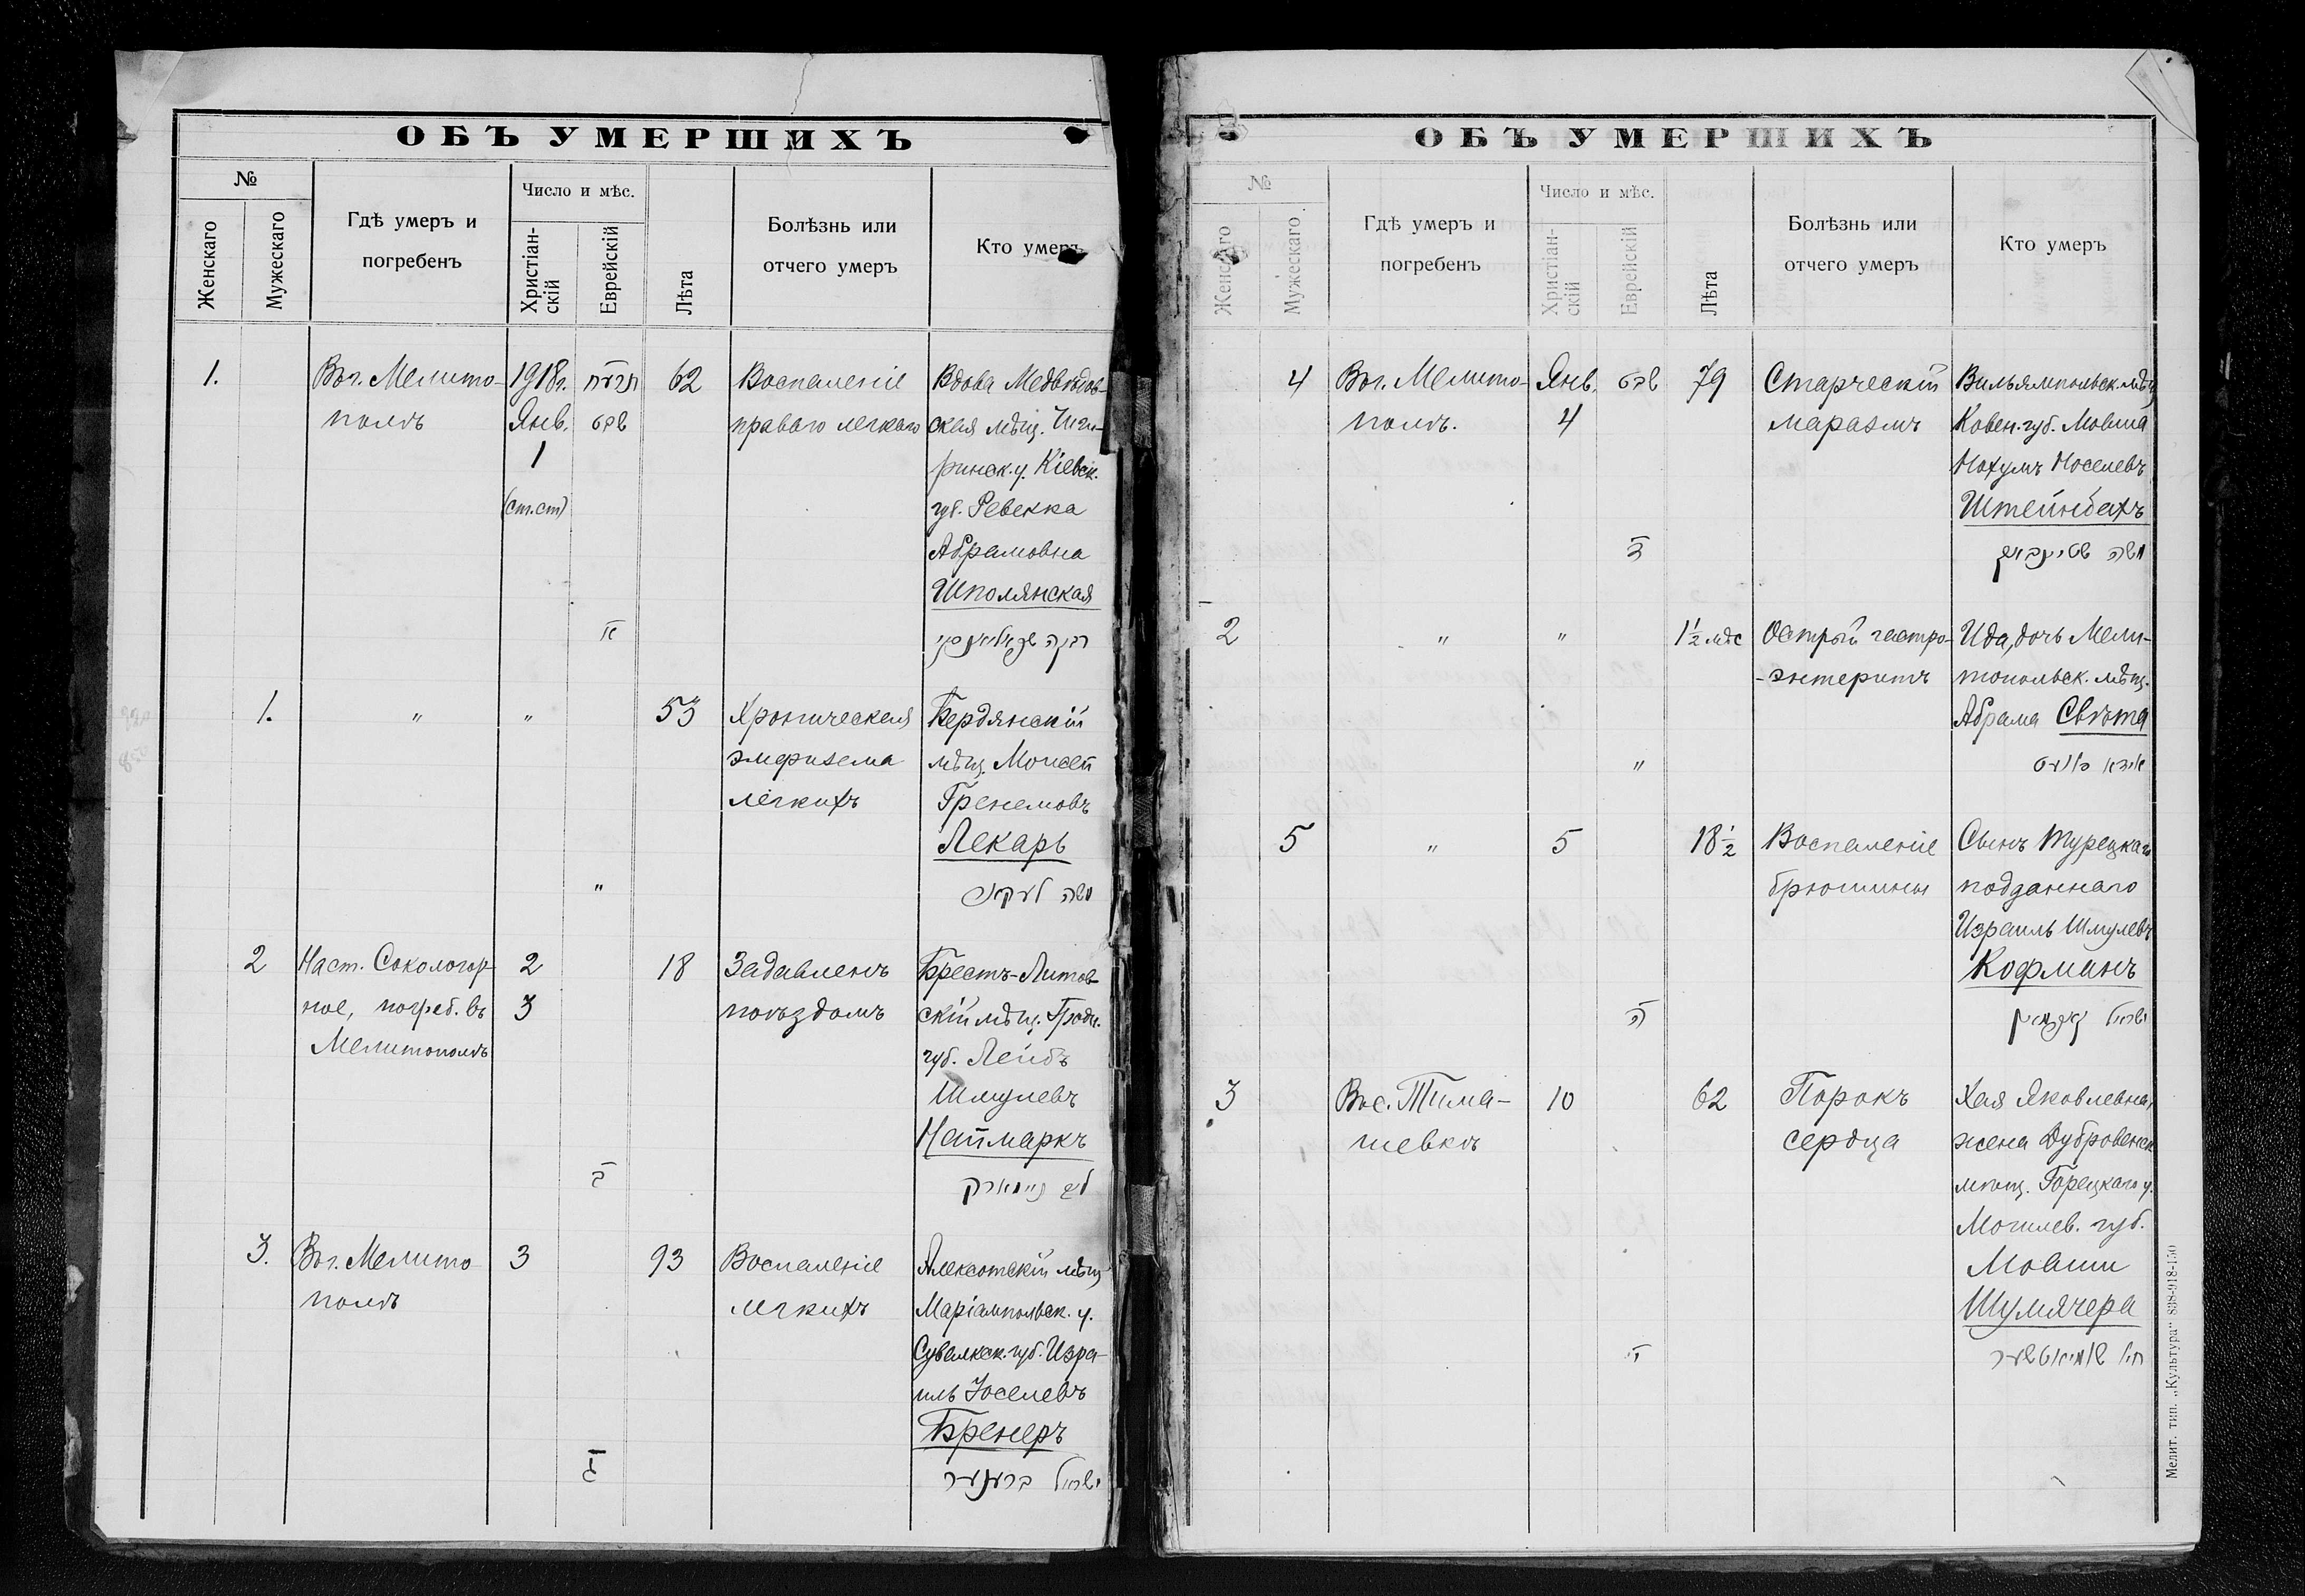 ОБЪ УМЕРШИХЪ
№
Женскаго
Мужескаго
Гдѣ умеръ и
погребенъ
Число и мѣс.
Христіан-
скій
Еврейскій
Лѣта
Болѣзнь или
отчего умеръ
Кто умеръ
1.
Въ г. Мелито-
полѣ
1918 г.
Янв.
1
(ст. ст)
62
Воспаленіе
праваго легкаго
Вдова Медвѣдов-
ская мѣщ. Чиги-
ринск. у. Кіевск.
губ. Ревекка
Абрамовна
Шполянская
1.
"
"
53
Хроническая
эмфизема
легкихъ
Бердянскій
мѣщ. Моисей
Лекарь
משה לעקאר
"
2
На ст. Сокологор-
ное, погреб. въ
Мелитополѣ
2
3
18
Задавленъ
поѣздомъ
Брестъ-Литов-
скій мѣщ. Гродн.
губ. Лейбъ
Шмулевъ
Наймаркъ
ליב ניימארק
3.
Въ г. Мелито
полѣ
3
93
Воспаленіе
легкихъ
Алексотскій мѣщ
Маріампольск. у.
Сувалкск. губ. Изра-
иль Іоселевъ
Бренеръ
ישראל ברענער
ОБЪ УМЕРШИХЪ
№
Женскаго
Мужескаго
Гдѣ умеръ и
погребенъ
Число и мѣс.
Христіан-
скій
Еврейскій
Лѣта
Болѣзнь или
отчего умеръ
Кто умеръ
4
Въ г. Мелито-
полѣ.
Янв.
4
79
Старческій
маразмъ
Вильямпольск. мѣщ
Ковен. губ. Мовша
Нохумъ Носелевъ
Штейнбахъ
2
"
"
1½ мѣс
Острый гастро-
-энтеритъ
Ида, дочь Мели-
топольск. мѣщ.
Абрама Свѣта
"
5
"
5
18½
Воспаленіе
брюшины
Сынъ Турецкаго
подданнаго
Израиль Шмулевъ
Кофманъ
ישראל קאפמאן
3
Въ с. Тима-
шевкѣ
10
62
Порокъ
сердца
Хая Яковлевна,
жена Дубровенск
мѣщ. Горецкаго у.
Могилев. губ.
Мовши
Шумячера
Мелит. тип. „Культура" 838-918-150